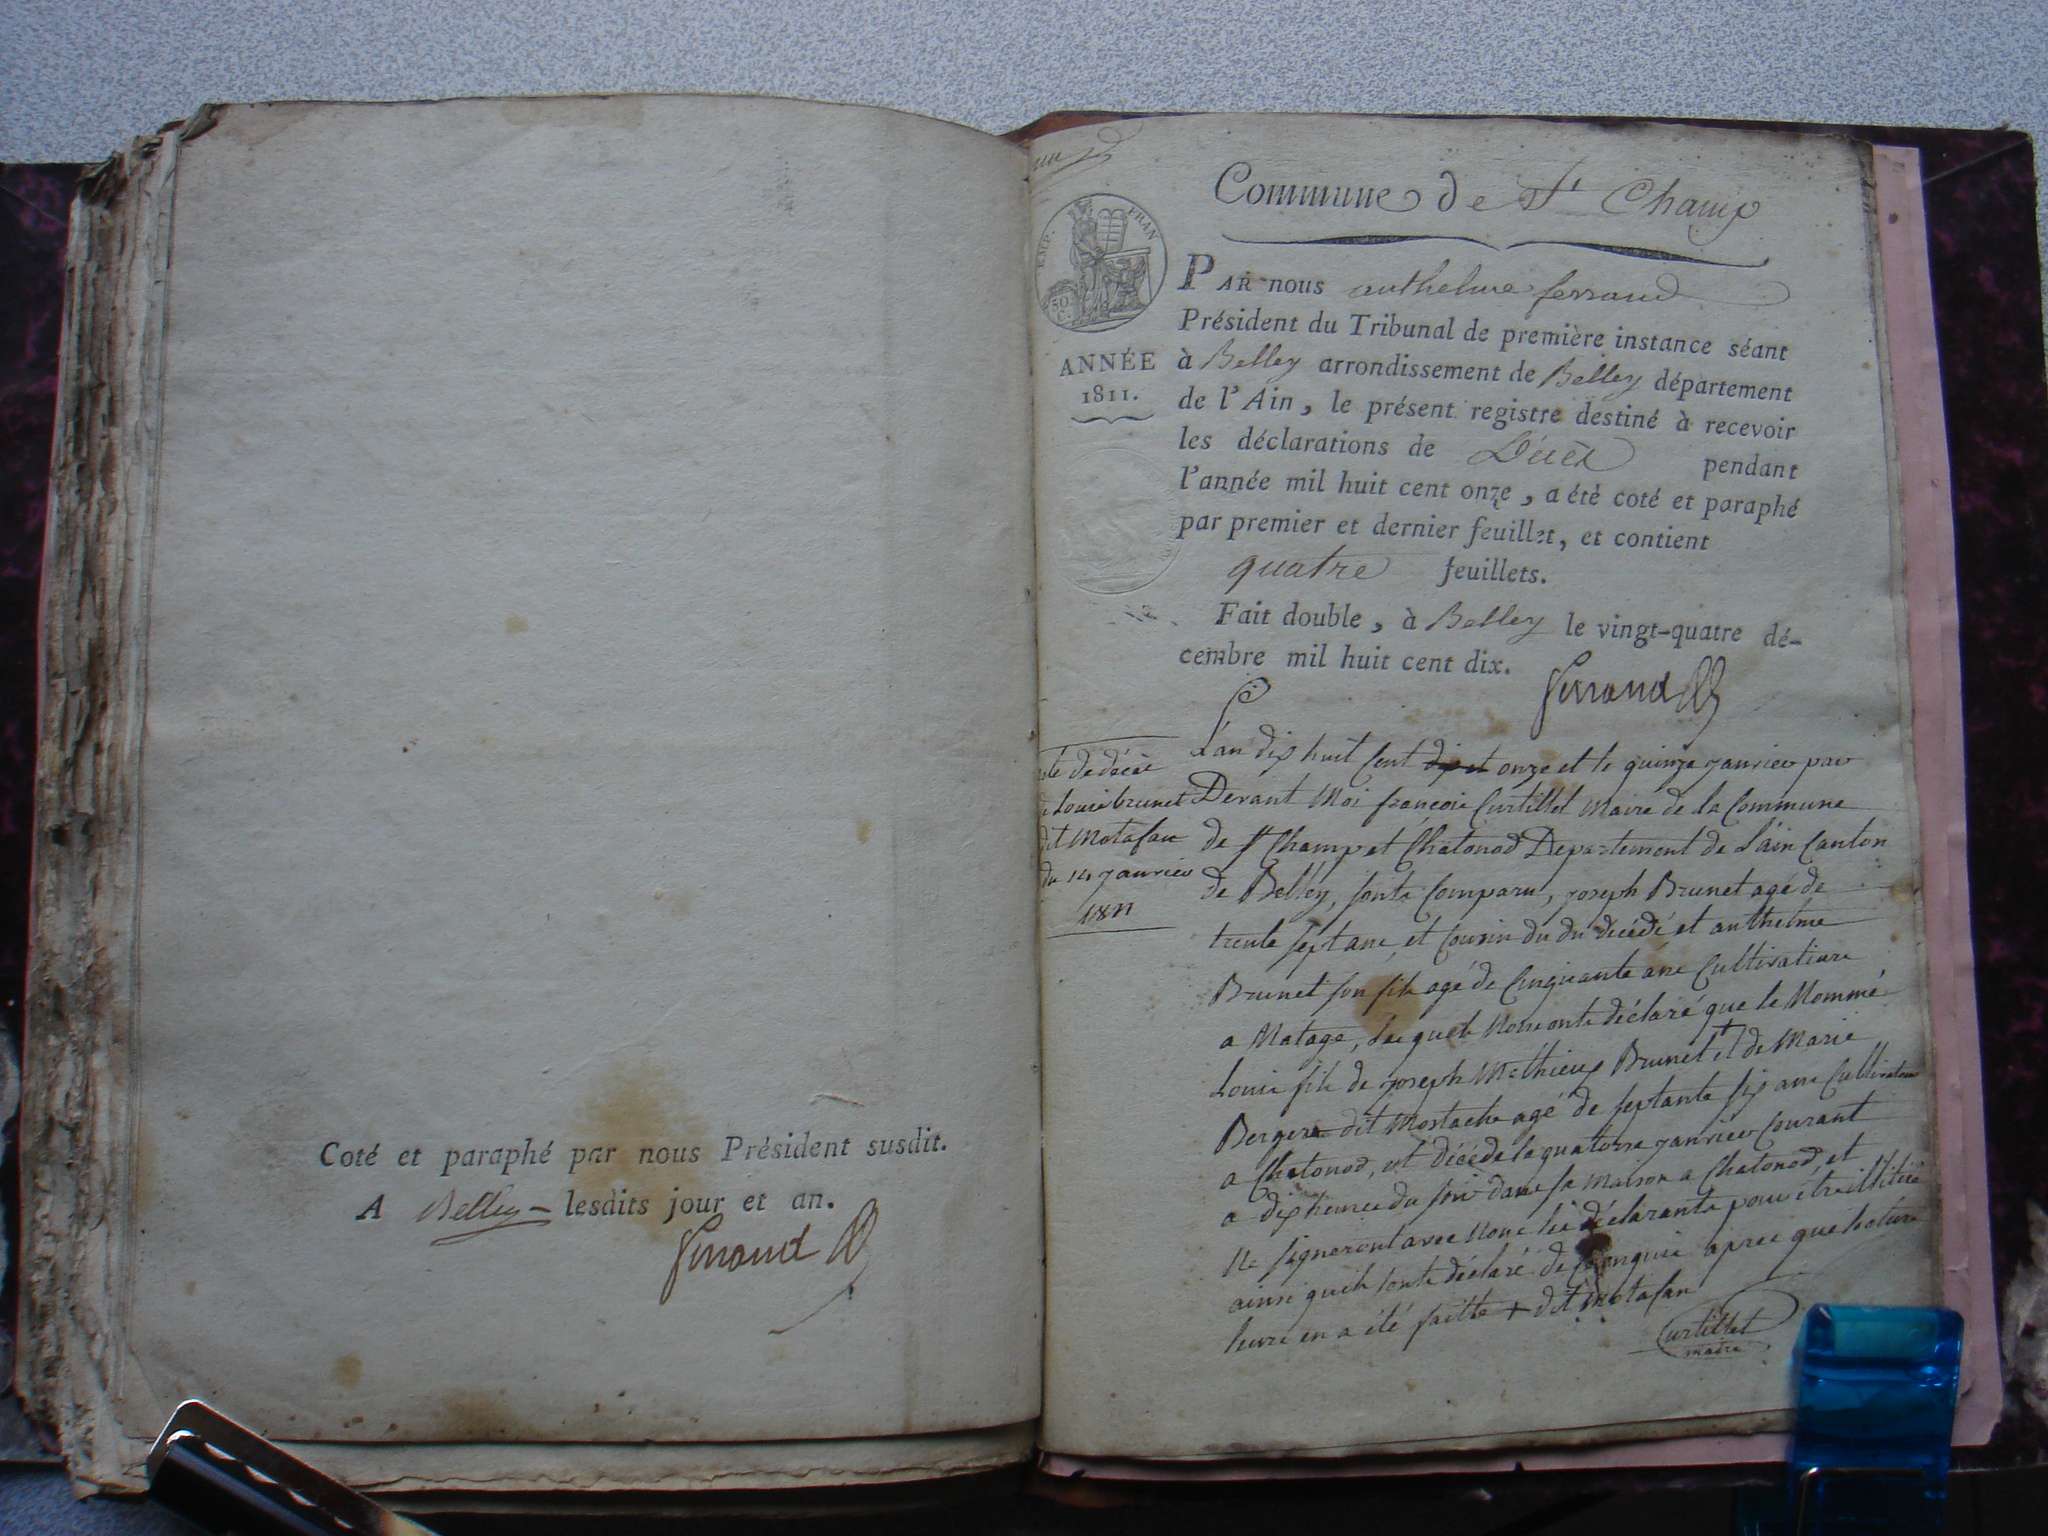 Coté et paraphé par nous Président susdit.
A Belley lesdits jour et an.
ferrand
Commune de St Champ
EMP. FRAN
50 C.
ANNÉE
1811.
PAR nous anthelme ferrand
Président du Tribunal de première instance séant
à Belley arrondissement de Belley département
de l'Ain, le présent registre destiné à recevoir
les déclarations de Décès pendant
l'année mil huit cent onze, a été coté et paraphé
par premier et dernier feuillet, et contient
quatre feuillets.
Fait double, à Belley le vingt-quatre dé-
cembre mil huit cent dix.
ferrand
de décès
de Louis brunet
dit Motafan
du 14 janvier
1811
L'an dix huit Cent dix et onze et le quinze janvier par
Devant Moi françois Curtillet Maire de la Commune
de St Champ et Chatonod Departement de L'ain Canton
de Belley, sont Comparu, joseph Brunet agé de
trente sept ans, et Cousin du du décédé et anthelme
Brunet son fils agé de Cinquante ans Cultivateurs
a Matage, les quels Nous onts déclaré que le Nommé
Louis fils de joseph Mathieux Brunet et de Marie
Berger dit Mostache agé de septante six ans Cultivateur
a Chatonod, est décédé le quatorze janvier Courant
a dix heures du soir dans sa Maison a Chatonod, et
Ne signeront avec Nous les déclarants pour être illitéré
ainsi quils sont déclaré de ce enquis apres que lecture
leurs en a été faitte + dit Motafan
Curtillet
maire